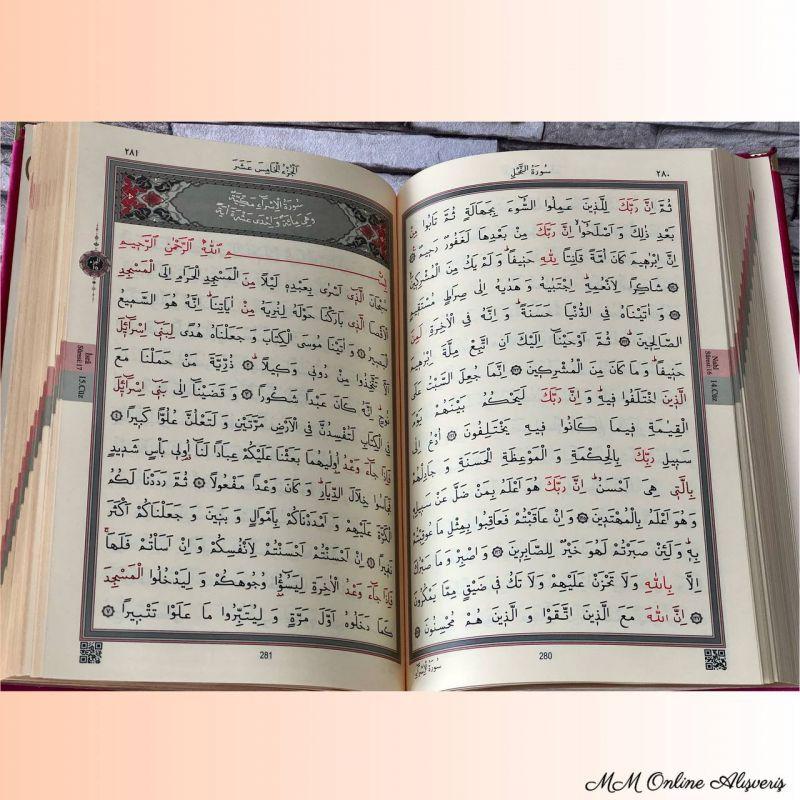 ٢٨٠
سُورَةُ النَّحْلِ
ثُمَّ اِنَّ رَبَّكَ لِلَّذ۪ينَ عَمِلُوا السُّٓوءَ بِجَهَالَةٍ ثُمَّ تَابُوا مِنْ
بَعْدِ ذٰلِكَ وَاَصْلَحُٓوا اِنَّ رَبَّكَ مِنْ بَعْدِهَا لَغَفُورٌ رَح۪يمٌ ﴿١١٩﴾
اِنَّ اِبْرٰه۪يمَ كَانَ اُمَّةً قَانِتًا لِلّٰهِ حَن۪يفًاۜ وَلَمْ يَكُ مِنَ الْمُشْرِك۪ينَ
﴿١٢٠﴾ شَاكِرًا لِاَنْعُمِهِۜ اِجْتَبٰيهُ وَهَدٰيهُ اِلٰى صِرَاطٍ مُسْتَق۪يمٍ
﴿١٢١﴾ وَاٰتَيْنَاهُ فِي الدُّنْيَا حَسَنَةًۜ وَاِنَّهُ فِي الْاٰخِرَةِ لَمِنَ
الصَّالِح۪ينَۜ ﴿١٢٢﴾ ثُمَّ اَوْحَيْنَٓا اِلَيْكَ اَنِ اتَّبِعْ مِلَّةَ اِبْرٰه۪يمَ
حَن۪يفًاۜ وَمَا كَانَ مِنَ الْمُشْرِك۪ينَ ﴿١٢٣﴾ اِنَّمَا جُعِلَ السَّبْتُ عَلَى
الَّذ۪ينَ اخْتَلَفُوا ف۪يهِۜ وَاِنَّ رَبَّكَ لَيَحْكُمُ بَيْنَهُمْ يَوْمَ
الْقِيٰمَةِ ف۪يمَا كَانُوا ف۪يهِ يَخْتَلِفُونَ ﴿١٢٤﴾ اُدْعُ اِلٰى
سَب۪يلِ رَبِّكَ بِالْحِكْمَةِ وَالْمَوْعِظَةِ الْحَسَنَةِ وَجَادِلْهُمْ
بِالَّت۪ي هِيَ اَحْسَنُۜ اِنَّ رَبَّكَ هُوَ اَعْلَمُ بِمَنْ ضَلَّ عَنْ سَب۪يلِه۪
وَهُوَ اَعْلَمُ بِالْمُهْتَد۪ينَ ﴿١٢٥﴾ وَاِنْ عَاقَبْتُمْ فَعَاقِبُوا بِمِثْلِ مَا عُوقِبْتُمْ
بِه۪ۜ وَلَئِنْ صَبَرْتُمْ لَهُوَ خَيْرٌ لِلصَّابِر۪ينَ ﴿١٢٦﴾ وَاصْبِرْ وَمَا صَبْرُكَ
اِلَّا بِاللّٰهِ وَلَا تَحْزَنْ عَلَيْهِمْ وَلَا تَكُ ف۪ي ضَيْقٍ مِمَّا يَمْكُرُونَ
﴿١٢٧﴾ اِنَّ اللّٰهَ مَعَ الَّذ۪ينَ اتَّقَوْا وَالَّذ۪ينَ هُمْ مُحْسِنُونَ ﴿١٢٨﴾
280
سُورَةُ الْاِسْرَاءِ
Nahl
Sûresi:16
14.Cüz
٢٨١
اَلْجُزْءُ الْخَامِسَ عَشَرَ
سُورَةُ الْاِسْرَاءِ مَكِّيَّةٌ
وَهِيَ مِائَةٌ وَاِحْدٰى عَشْرَةَ اٰيَةً
بِسْمِ اللّٰهِ الرَّحْمٰنِ الرَّح۪يمِ
سُبْحَانَ الَّذ۪ٓي اَسْرٰى بِعَبْدِه۪ لَيْلًا مِنَ الْمَسْجِدِ الْحَرَامِ اِلَى الْمَسْجِدِ
الْاَقْصَا الَّذ۪ي بَارَكْنَا حَوْلَهُ لِنُرِيَهُ مِنْ اٰيَاتِنَاۜ اِنَّهُ هُوَ السَّم۪يعُ
الْبَص۪يرُ ﴿١﴾ وَاٰتَيْنَا مُوسَى الْكِتَابَ وَجَعَلْنَاهُ هُدًى لِبَن۪ٓي اِسْرَٓائ۪لَ
اَلَّا تَتَّخِذُوا مِنْ دُون۪ي وَك۪يلًاۜ ﴿٢﴾ ذُرِّيَّةَ مَنْ حَمَلْنَا مَعَ
نُوحٍۜ اِنَّهُ كَانَ عَبْدًا شَكُورًا ﴿٣﴾ وَقَضَيْنَٓا اِلٰى بَن۪ٓي اِسْرَٓائ۪لَ
فِي الْكِتَابِ لَتُفْسِدُنَّ فِي الْاَرْضِ مَرَّتَيْنِ وَلَتَعْلُنَّ عُلُوًّا كَب۪يرًا ﴿٤﴾
فَاِذَا جَٓاءَ وَعْدُ اُو۫لٰيهُمَا بَعَثْنَا عَلَيْكُمْ عِبَادًا لَنَٓا اُو۬ل۪ي بَأْسٍ شَد۪يدٍ
فَجَاسُوا خِلَالَ الدِّيَارِۜ وَكَانَ وَعْدًا مَفْعُولًا ﴿٥﴾ ثُمَّ رَدَدْنَا لَكُمُ
الْكَرَّةَ عَلَيْهِمْ وَاَمْدَدْنَاكُمْ بِاَمْوَالٍ وَبَن۪ينَ وَجَعَلْنَاكُمْ اَكْثَرَ
نَف۪يرًا ﴿٦﴾ اِنْ اَحْسَنْتُمْ اَحْسَنْتُمْ لِاَنْفُسِكُمْ وَاِنْ اَسَأْتُمْ فَلَهَاۜ
فَاِذَا جَٓاءَ وَعْدُ الْاٰخِرَةِ لِيَسُٓوؤُ۫ا وُجُوهَكُمْ وَلِيَدْخُلُوا الْمَسْجِدَ
كَمَا دَخَلُوهُ اَوَّلَ مَرَّةٍ وَلِيُتَبِّرُوا مَا عَلَوْا تَتْب۪يرًا ﴿٧﴾
281
İsrâ
Sûresi:17
15.Cüz
MM Online Alışveriş